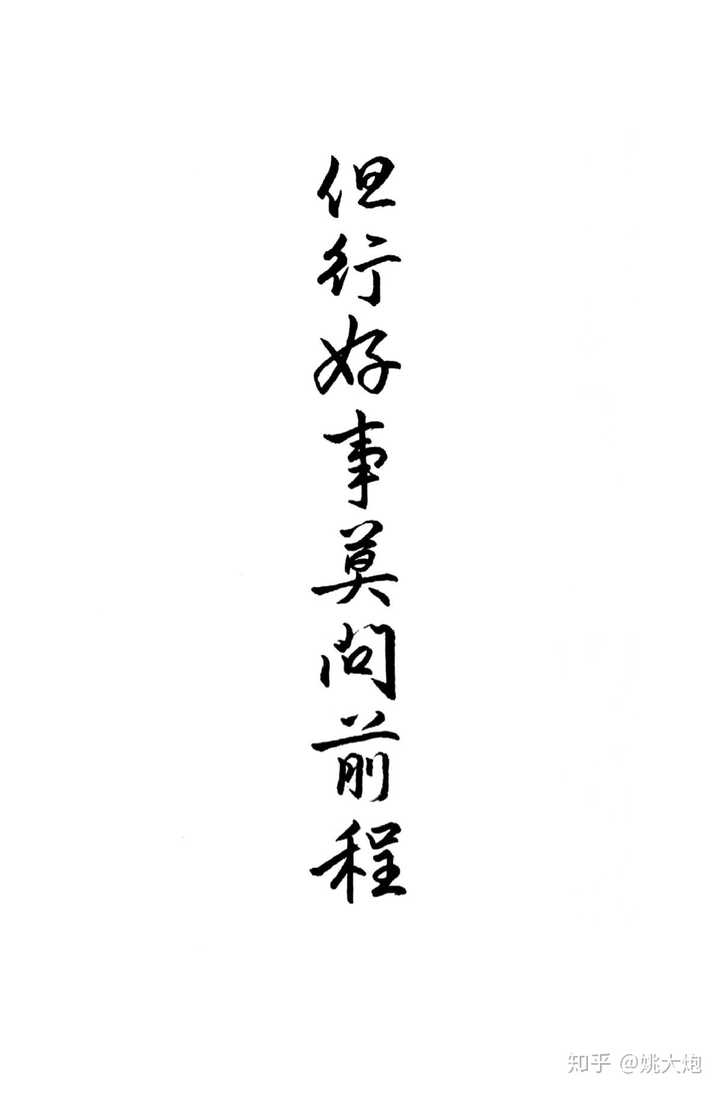 但行好事莫问前程
知乎 @姚大炮